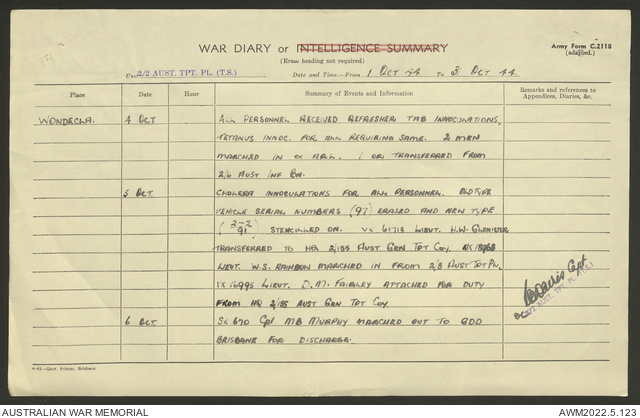 WAR DIARY or INTELLIGENCE SUMMARY
Army Form C.2118
(adapted.)
(Erase heading not required)
Unit 2/2 AUST. TPT. PL. (T.S.)
Date and Time.—From 1 OCT 44 To 31 OCT 44.
Place Date Hour Summary of Events and Information Remarks and references to
Appendices, Diaries, &c.
WONDECLA. 4 OCT ALL PERSONNEL RECEIVED REFRESHER TAB INNOCULATIONS.
TETANUS INNOC. FOR ALL REQUIRING SAME. 2 MEN
MARCHED IN EX ARL. 1 OR TRANSFERRED FROM
2/6 AUST INF BN.
5 OCT. CHOLERA INNOCULATIONS FOR ALL PERSONNEL. OLD TYPE
VEHICLE SERIAL NUMBERS (97) ERASED AND NEW TYPE
(2-2
91) STENCILLED ON. VX 61713 LIEUT. H.W. GLENISTER
TRANSFERRED TO HQ 2/155 AUST GEN TPT COY.
LIEUT. W.S. RAINBOW MARCHED IN FROM 2/3 AUST TPT PL.
LIEUT. D.M. FAIRLEY ATTACHED FOR DUTY
FROM HQ 2/155 AUST GEN TPT COY
6 OCT. SX 670 CPL MB MURPHY MARCHED OUT TO GDD
BRISBANE FOR DISCHARGE.
Capt
OC 2/2 AUST. TPT. PL. (T.S.)
4-43—Govt. Printer, Brisbane.
AUSTRALIAN WAR MEMORIAL AWM2022.5.123